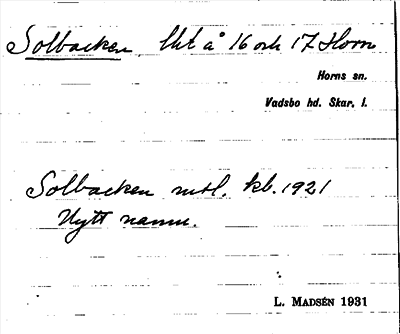 Solbacken, lht å 16 och 17 Horn
Horns sn.
Vadsbo hd. Skar. l.
Solbacken mtl. kb. 1921
Nytt namn.
L. MADSÉN 1931